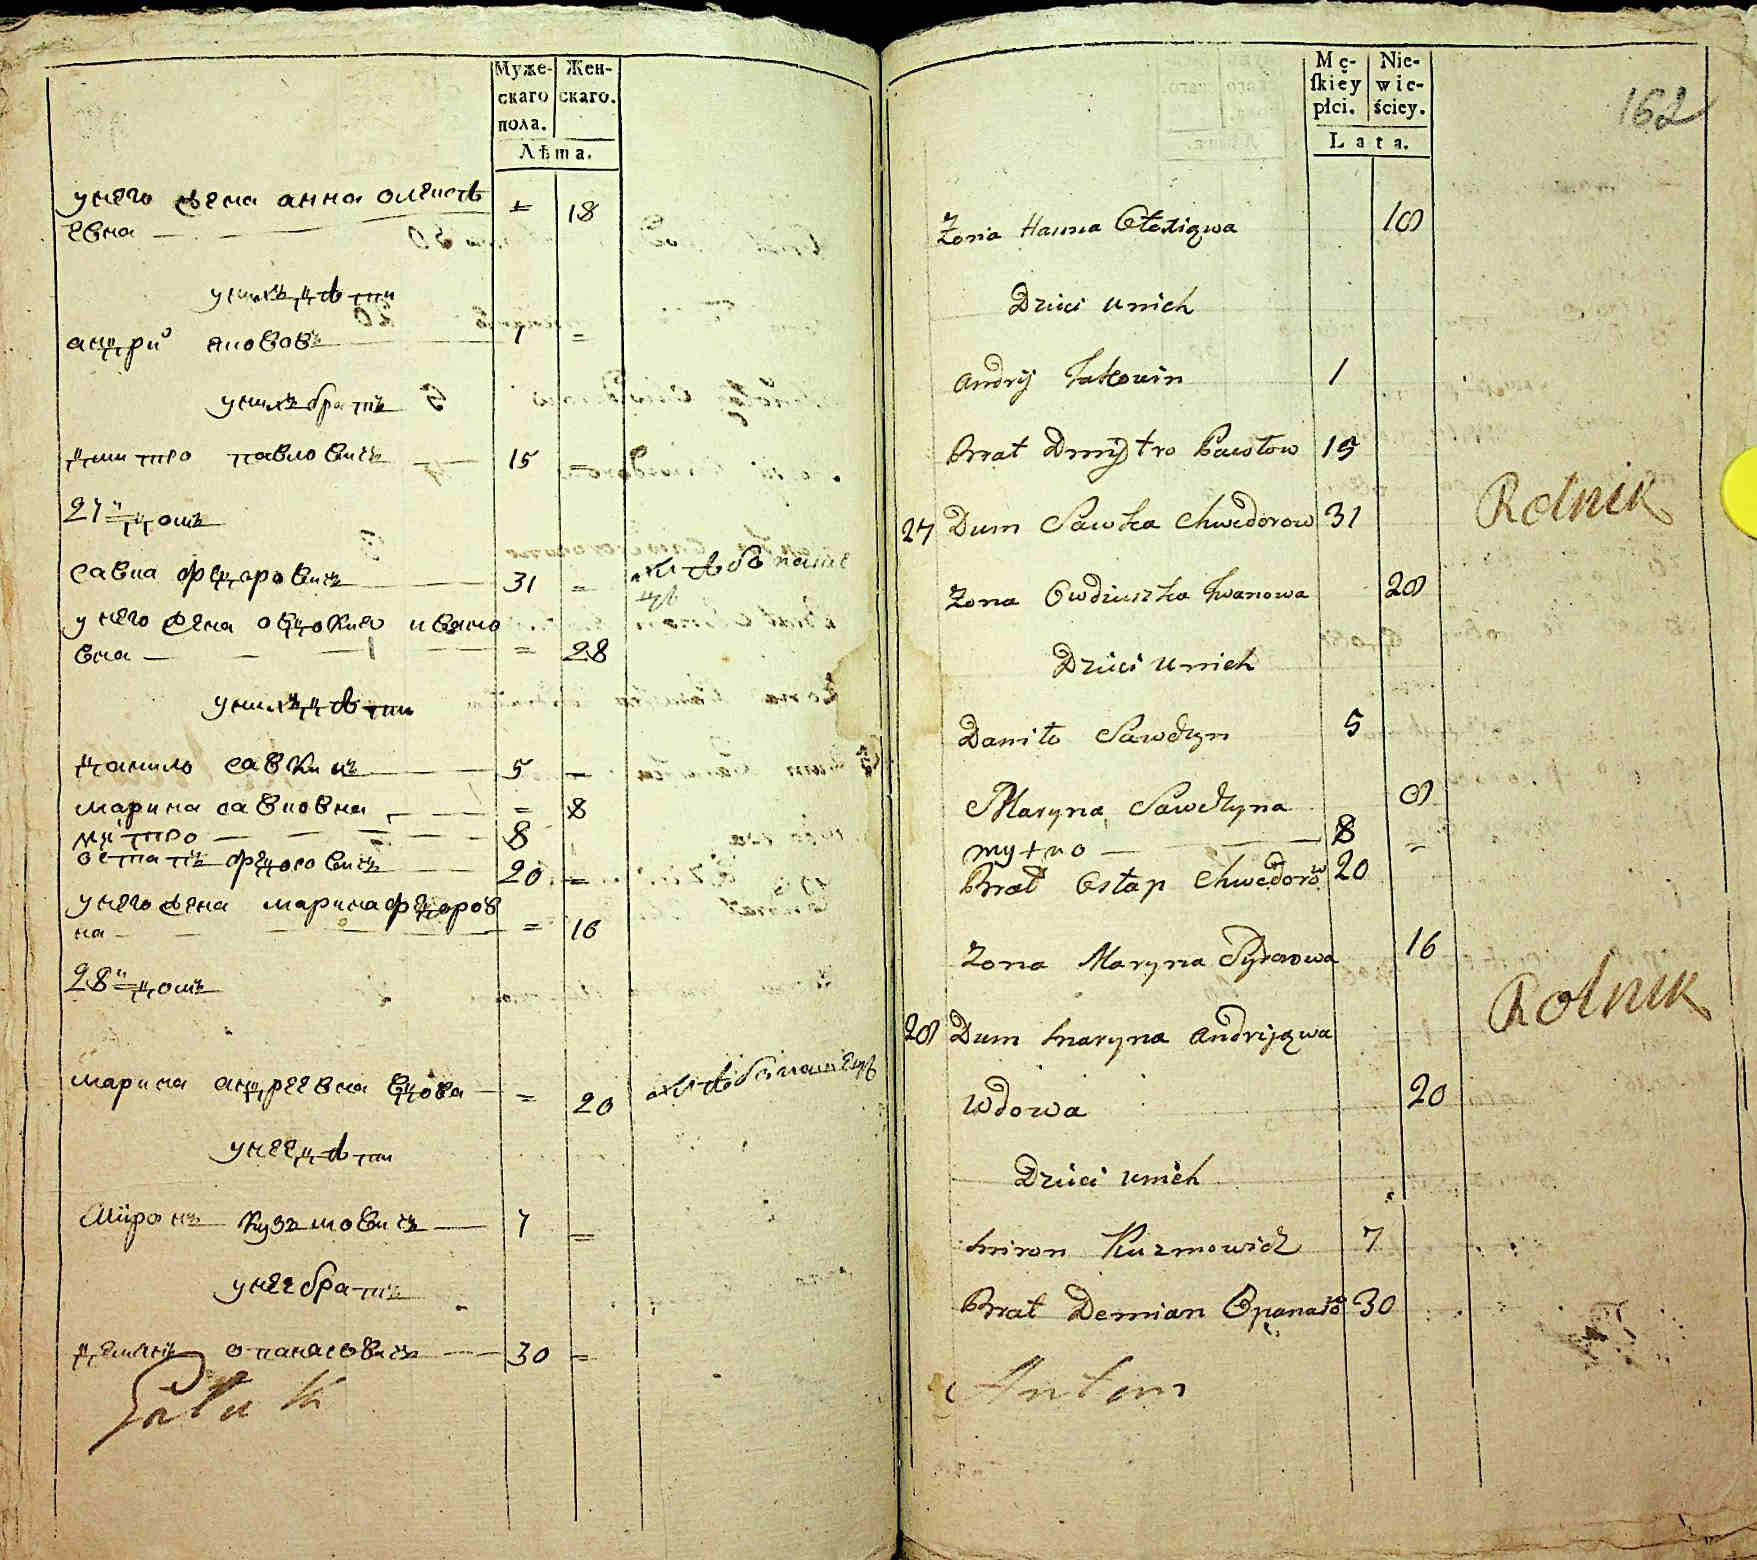 Муже-
скаго
пола.
Жен-
скаго.
Лѣта.
у него жена анна олексѣ
евна 18
у нихъ дѣти
андрий яковов 1 =
у нихъ братъ
дмитро павловичъ 15
27й домъ
савка федоровичъ 31 = хлѣбопашецъ
у него жена овдокия ивано
вна = 28
у нихъ дѣти
данило савкинъ 5
марина савковна = 8
митро 8
остапъ федоровичъ 20
у него жена марина федоров
на = 16
28й домъ
марина андреевна вдова = 20 хлѣбопашецъ
у нее дѣти
миронъ кузьмовичъ 7 =
у нее братъ
демянъ опанасовичъ 30
162
Mę-
ſkiéy
płci.
Nie-
wie-
ściey.
Lata.
Żona Hanna 18
Dzieci u nich
Andrij Jakowin 1
Brat Dmytro Pawłow 15
27 Dum Sawka Chwedorow 31 Rolnik
Żona Owdiuszka Iwanowa 28
Dzieci u nich
Daniło Sawczyn 5
Maryna Sawczyna 8
mytro 8 =
Brat Ostap Chwedorow 20
Żona Maryna 16
28 Dum Maryna Andrijowa Rolnik
Wdowa 20
Dzieci u nich
Miron Kuzmowicz 7
Brat Demian Opanasow 30
Antoni